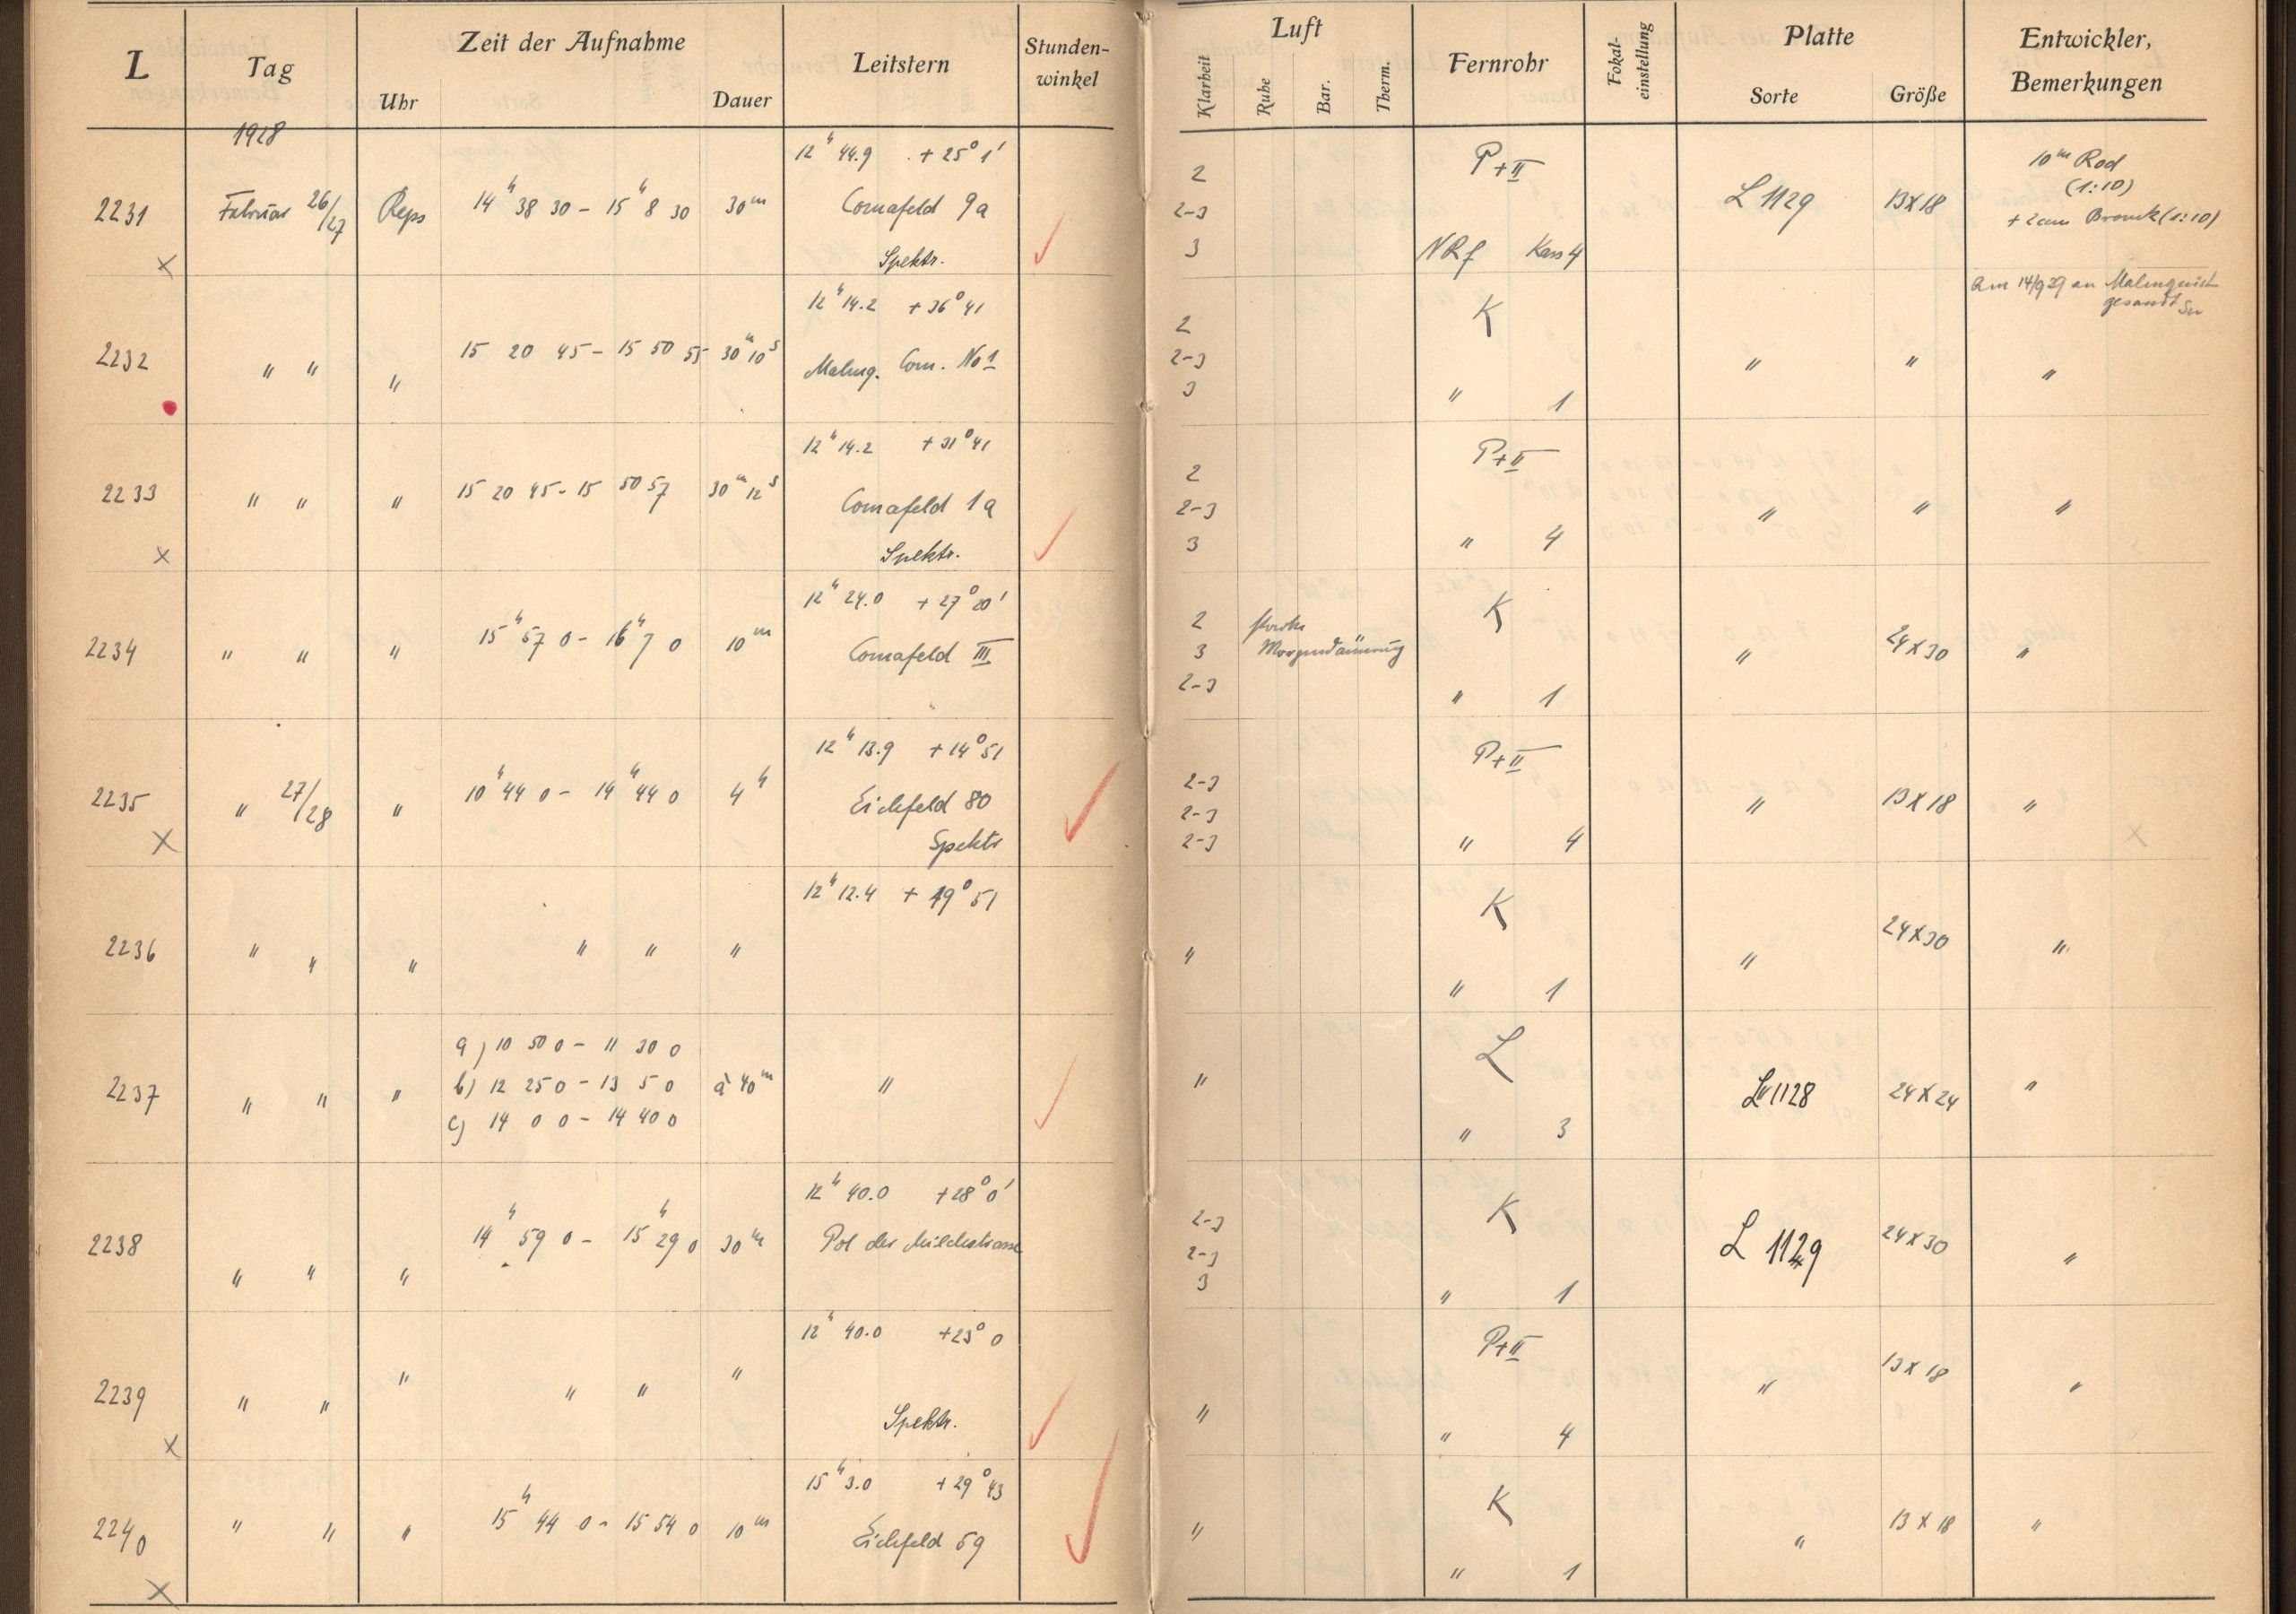 L Tag Zeit der Aufnahme Leitstern Stunden-winkel Luft Fernrohr Fokal-einstellung Platte Entwickler, Bemerkungen
Uhr Dauer Klarheit Ruhe Bar. Therm. Sorte Größe
1928
12ʰ 44.9 + 25° 1′ 2 P+II 10ᵐ Rod
(1:10)
2231 Februar 26/27 Reps 14ʰ 38 30 – 15ʰ 8 30 30ᵐ Comafeld 9a 2-3 L 1129 13x18 + 2ccm Bromk (1:10)
x Spektr. 3 NRf Kass 4
am 14/9 29 an Malmquist
gesandt
12ʰ 14.2 + 36° 41 2 K
2232 " " " 15 20 45 – 15 50 55 30ᵐ 10ˢ Malmq. Com. No 1 2-3 " " "
3 " 1
12ʰ 14.2 + 31° 41 2 P+II
2233 " " " 15 20 45 - 15 50 57 30ᵐ 12ˢ Comafeld 1a 2-3 " " "
x Spektr. 3 " 4
12ʰ 24.0 + 27° 20′ 2 starke K
2234 " " " 15ʰ 57 0 – 16ʰ 7 0 10ᵐ Comafeld III 3 Morgendämmrung " 24x30 "
2-3 " 1
12ʰ 13.9 + 14° 51 2-3 P+II
2235 " 27/28 " 10ʰ 44 0 – 14ʰ 44 0 4ʰ Eichfeld 80 2-3 " 13x18 "
x Spektr 2-3 " 4
12ʰ 12.4 + 19° 51 K
2236 " " " " " " " " 24x30 "
" 1
a) 10 50 0 – 11 30 0 L
2237 " " " b) 12 25 0 – 13 5 0 à 40ᵐ " " L 1128 24x24 "
c) 14 0 0 – 14 40 0 " 3
12ʰ 40.0 + 28° 0′ 2-3 K
2238 " " " 14ʰ 59 0 – 15ʰ 29 0 30ᵐ Pol der Milchstrasse 2-3 L 1129 24x30 "
3 " 1
12ʰ 40.0 + 23° 0 P+II
2239 " " " " " " " " 13x18 "
x Spektr. " 4
15ʰ 3.0 + 29° 43 K
2240 " " " 15ʰ 44 0 – 15 54 0 10ᵐ Eichfeld 59 " " 13x18 "
x " 1